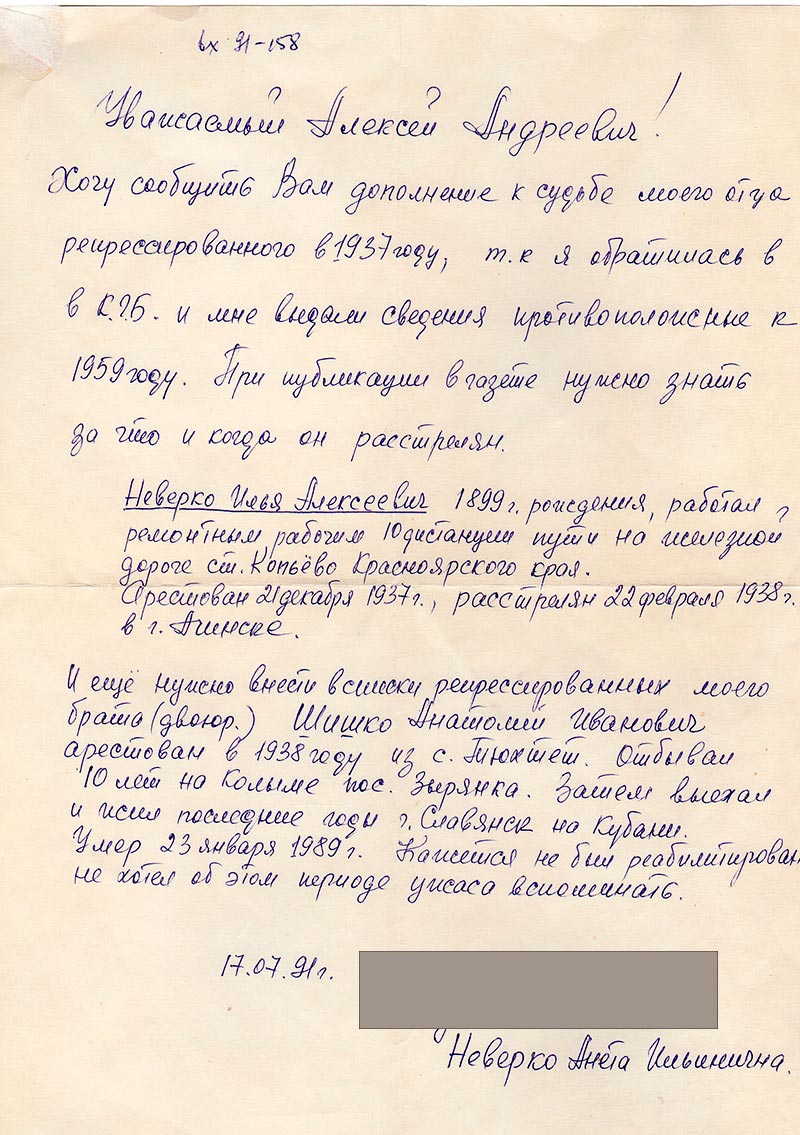 вх 91-158
Уважаемый Алексей Андреевич!
Хочу сообщить Вам дополнение к судьбе моего отца
репрессированного в 1937 году, т.к я обратилась в
в К.Г.Б. и мне выдали сведения противоположные к
1959 году. При публикации в газете нужно знать
за что и когда он расстрелян.
Неверко Илья Алексеевич 1899 г. рождения, работал
ремонтным рабочим 10 дистанции пути на железной
дороге ст. Копьёво Красноярского края.
Арестован 21 декабря 1937 г., расстрелян 22 февраля 1938 г.
в г. Ачинске.
И ещё нужно внести в списки репрессированных моего
брата (двоюр.) Шишко Анатолий Иванович
арестован в 1938 году из с. Тюхтет. Отбывал
10 лет на Колыме пос. Зырянка. Затем выехал
и жил последние годы г. Славянск на Кубани.
Умер 23 января 1989 г. Кажется не был реабилитирован
не хотел об этом периоде ужаса вспоминать.
17.07.91 г.
Неверко Анета Ильинична.